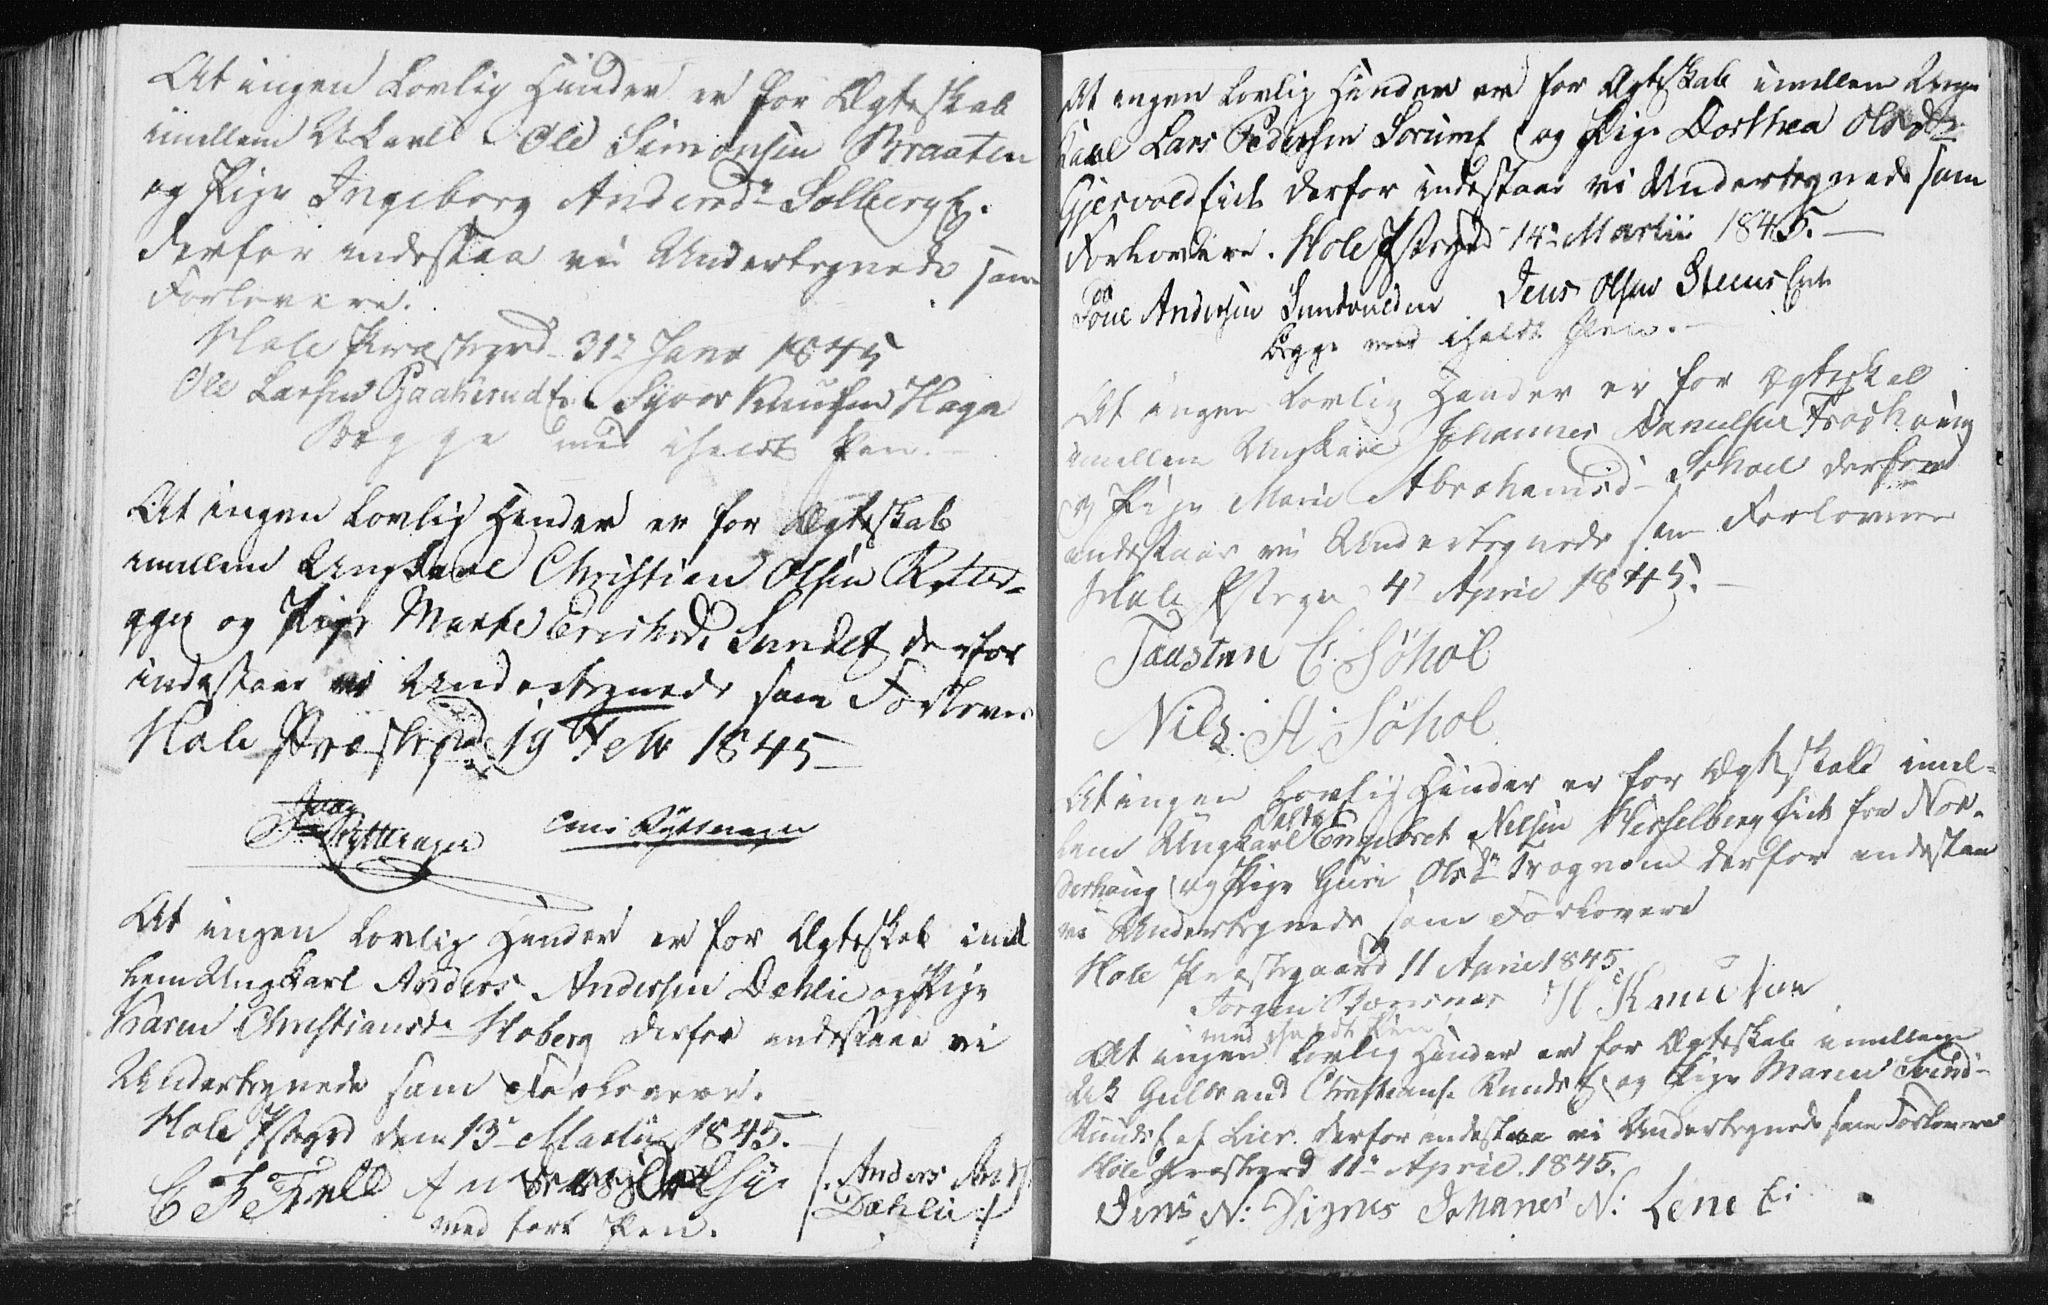 At ingen Lovlig Hinder er for Ægteskab
imellem UKarl Ole Simonsen Braaten
og Pige Ingeborg Andersd. Solberg E.
derfor indestaa vi Undertegnede som
Forlovere.
Hole Præstegrd 31 Janr 1845
Ole Larsen Syver Knudsen Haga
Begge med iholdt Pen.
At ingen Lovlig Hinder er for Ægteskab
imellem Ungkarl Christian Olsen Rytter-
ager og Pige Marthe Erichsd. Sundet derfor
indestaar vi Undertegnede som Forlover
Hole Præstegrd 19 Febr 1845
Rytterager
Rytterager
At ingen Lovlig Hinder er for Ægteskab imel
lem Ungkarl Anders Andersen Dehlie og Pige
Karen Christiansd. Hoberg derfor indestaae vi
Undertegnede som Forlovere.
Hole Pstgrd den 13 Martii 1845.
Anders And.
Dæhlie
med ført Pen.
At ingen Lovlig Hinder er for Ægteskab imellem Unge
Karl Lars Pedersen Sørum E. og Pige Dorthea Olsdr
Gjesvold Eiet derfor indestaar vi Undertegnede som
Forlovere. Hole Pstegrd 14 Martii 1845.
Povel Andersen Sundvolden Jens Olsen Steens Eie
Begge med iholdt Pen.
At ingen Lovlig Hinder er for Ægteskab
imellem Ungkarl Johannes Danielsen Frøshoug
og Pige Marie Abrahamsd. Sohoel derfor
indestaar vi Undertegnede som Forlovere
Hole Pstegr 4 April 1845.
Taasten E. Søhol
Nils. A. Søhol
At ingen Lovlig Hinder er for Ægteskab imel-
lem Ungkarl Engebret Nilsen Hesselberg Eiet fra Nor-
derhoug og Pige Guri Olsd. Trognom derfor indestaa
vi Undertegnede som Forlovere
Hole Præstegaard 11 April 1845
Jørgen Bønsnæs H. Knudson
med iholdt Pen
At ingen Lovlig Hinder er for Ægteskab imellem
UK Gulbrand Christians. Runds E. og Pige Maren
af Lier. derfor indestaa vi Undertegnede som Forlovere
Hole Præstegrd 11 April 1845.
Jens N: Johanes N: Lene Ei